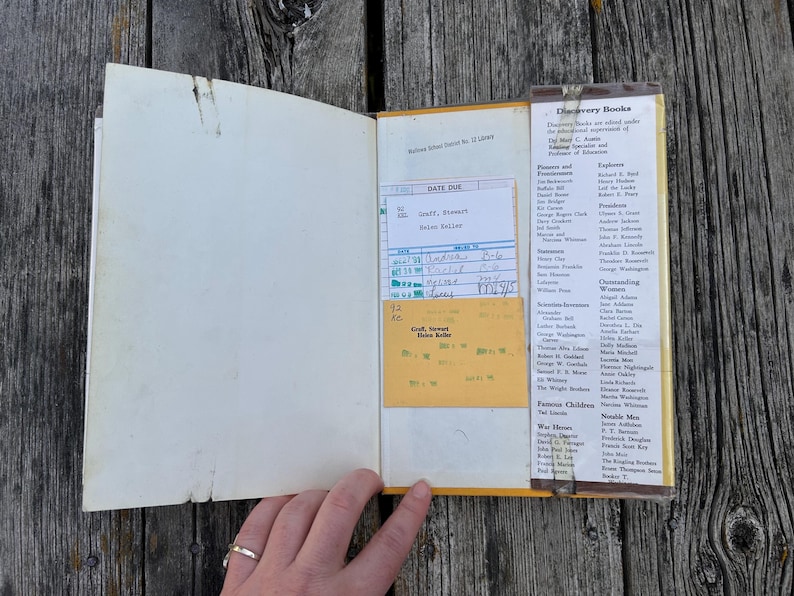 Wallowa School District No. 12 Library
DATE DUE
92
KEL Graff, Stewart
Helen Keller
DATE ISSUED TO
Andrea B-6
Rachel C-6
Melissa
92
Ke
Graff, Stewart
Helen Keller
Discovery Books
Discovery Books are edited under
the educational supervision of
Dr. Mary C. Austin
Reading Specialist and
Professor of Education
Pioneers and
Frontiersmen
Jim Beckwourth
Buffalo Bill
Daniel Boone
Jim Bridger
Kit Carson
George Rogers Clark
Davy Crockett
Jed Smith
Marcus and
Narcissa Whitman
Statesmen
Henry Clay
Benjamin Franklin
Sam Houston
Lafayette
William Penn
Scientists-Inventors
Alexander
Graham Bell
Luther Burbank
George Washington
Carver
Thomas Alva Edison
Robert H. Goddard
George W. Goethals
Samuel F. B. Morse
Eli Whitney
The Wright Brothers
Famous Children
Tad Lincoln
War Heroes
Stephen Decatur
David G. Farragut
John Paul Jones
Robert E. Lee
Francis Marion
Paul Revere
Explorers
Richard E. Byrd
Henry Hudson
Leif the Lucky
Robert E. Peary
Presidents
Ulysses S. Grant
Andrew Jackson
Thomas Jefferson
John F. Kennedy
Abraham Lincoln
Franklin D. Roosevelt
Theodore Roosevelt
George Washington
Outstanding
Women
Abigail Adams
Jane Addams
Clara Barton
Rachel Carson
Dorothea L. Dix
Amelia Earhart
Helen Keller
Dolly Madison
Maria Mitchell
Lucretia Mott
Florence Nightingale
Annie Oakley
Linda Richards
Eleanor Roosevelt
Martha Washington
Narcissa Whitman
Notable Men
James Audubon
P. T. Barnum
Frederick Douglass
Francis Scott Key
John Muir
The Ringling Brothers
Ernest Thompson Seton
Booker T.